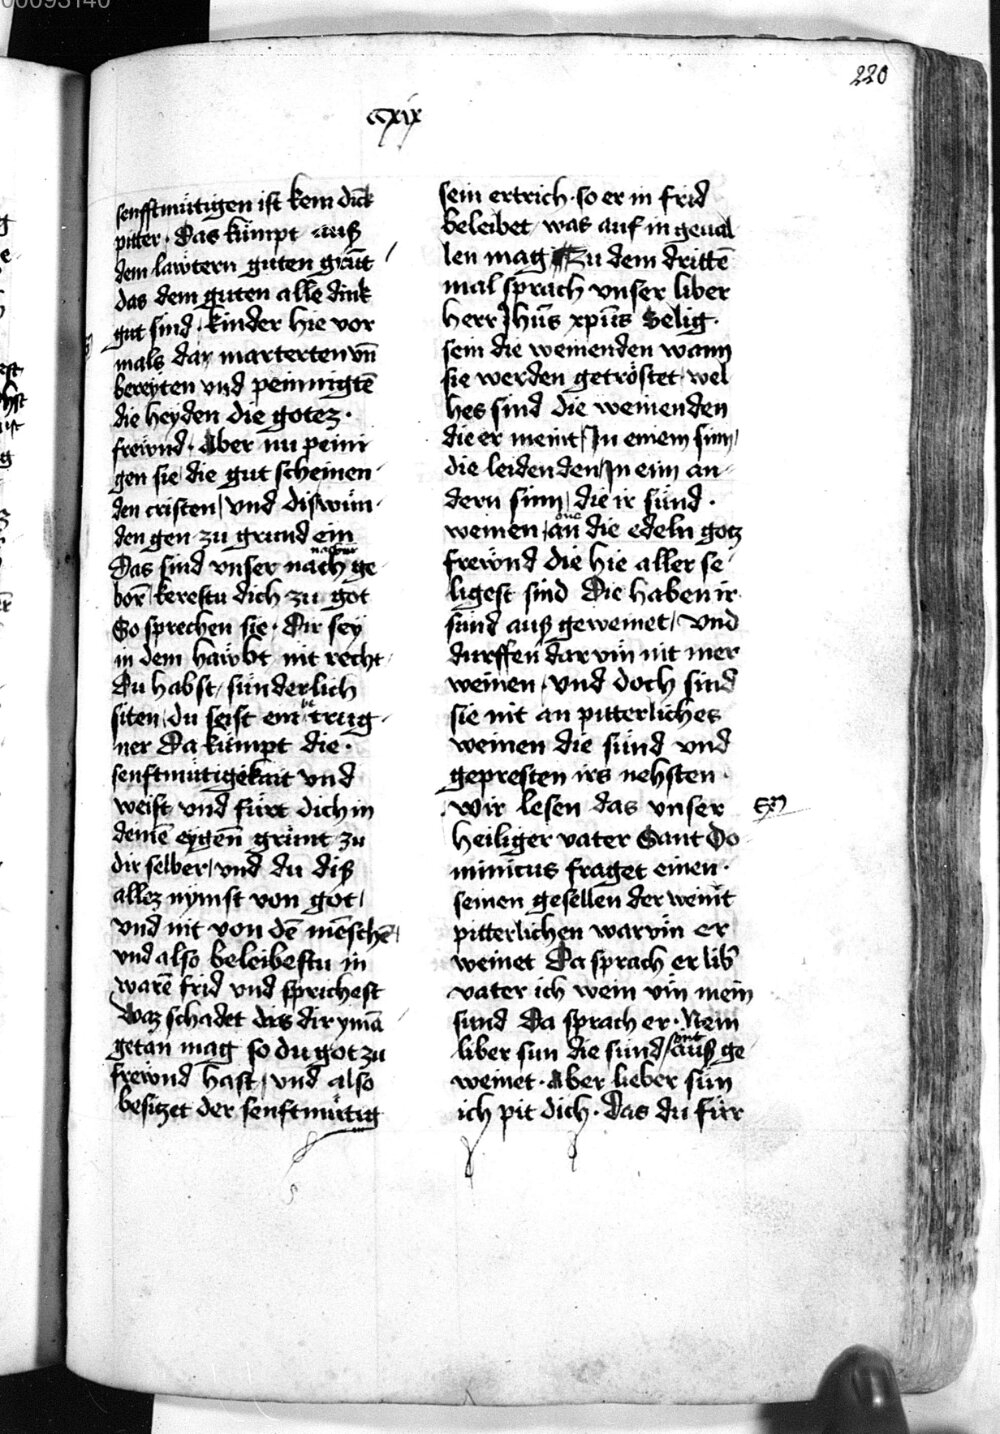 220
cxix
senfftmütigen ist kein dick
pitter · Das kümpt auß
dem lawtern guten grūt
das dem guten alle dink
gut sind · kinder hie vor
mals da marterten vn̄
bereyten vnd peinnigtē
die heyden die gotez ·
frewnd · Aber nu peini
gen sie die gut scheinen
den cristen / vnd diswün
den gen zu grund ein
nahtur
Das sind vnser nach ge
born̄ kerestu dich zu got
So sprechen sie · Dir sey
in dem hawbt nit recht
Du habst / sünderlich
siten / du seist ein trug
ner Da kümpt die ·
senftmütigekait vnd
weist vnd fürt dich in
deinē eygen̄ grunt zu
dir selber / vnd du diß
allez nymst von got /
vnd nit von dē menschē /
vnd also beleibestu in
warē frid vnd sprichest
Waz schadet das dir ymā
getan mag so du got zu
frewnd hast / vnd also
besitzet der senftmütig
sein ertrich · so er in frid
beleibet was auf in geual
len mag Zu dem drittē
mal sprach vnser liber
herr Jhūs xpūs Selig ·
sein die weinenden wann
sie werden getröstet wel
hes sind die weinenden
die er meint / Jn einem sinn /
die leidenden / Jn eim an
dern sinn / die ir sünd ·
weinen / an die edeln gotz
frewnd die hie aller se
ligest sind Die haben ir
sünd auß geweinet / vnd
durffen dar vm̄ nit mer
weinen · vnd doch sind
sie nit an pitterliches
weinen die sünd vnd
gepresten irs nehsten ·
Wir lesen das vnser
Ex̄
heiliger vater Sant Do
minicus fraget einen ·
seinen gesellen der weint
pitterlichen warvm̄ er
weinet Da sprach er lib̄
vater ich wein vm̄ mein
sund Da sprach er · Nein
liber sun die sünd / sint auß ge
weinet · Aber lieber sun
ich pit dich · Das du für